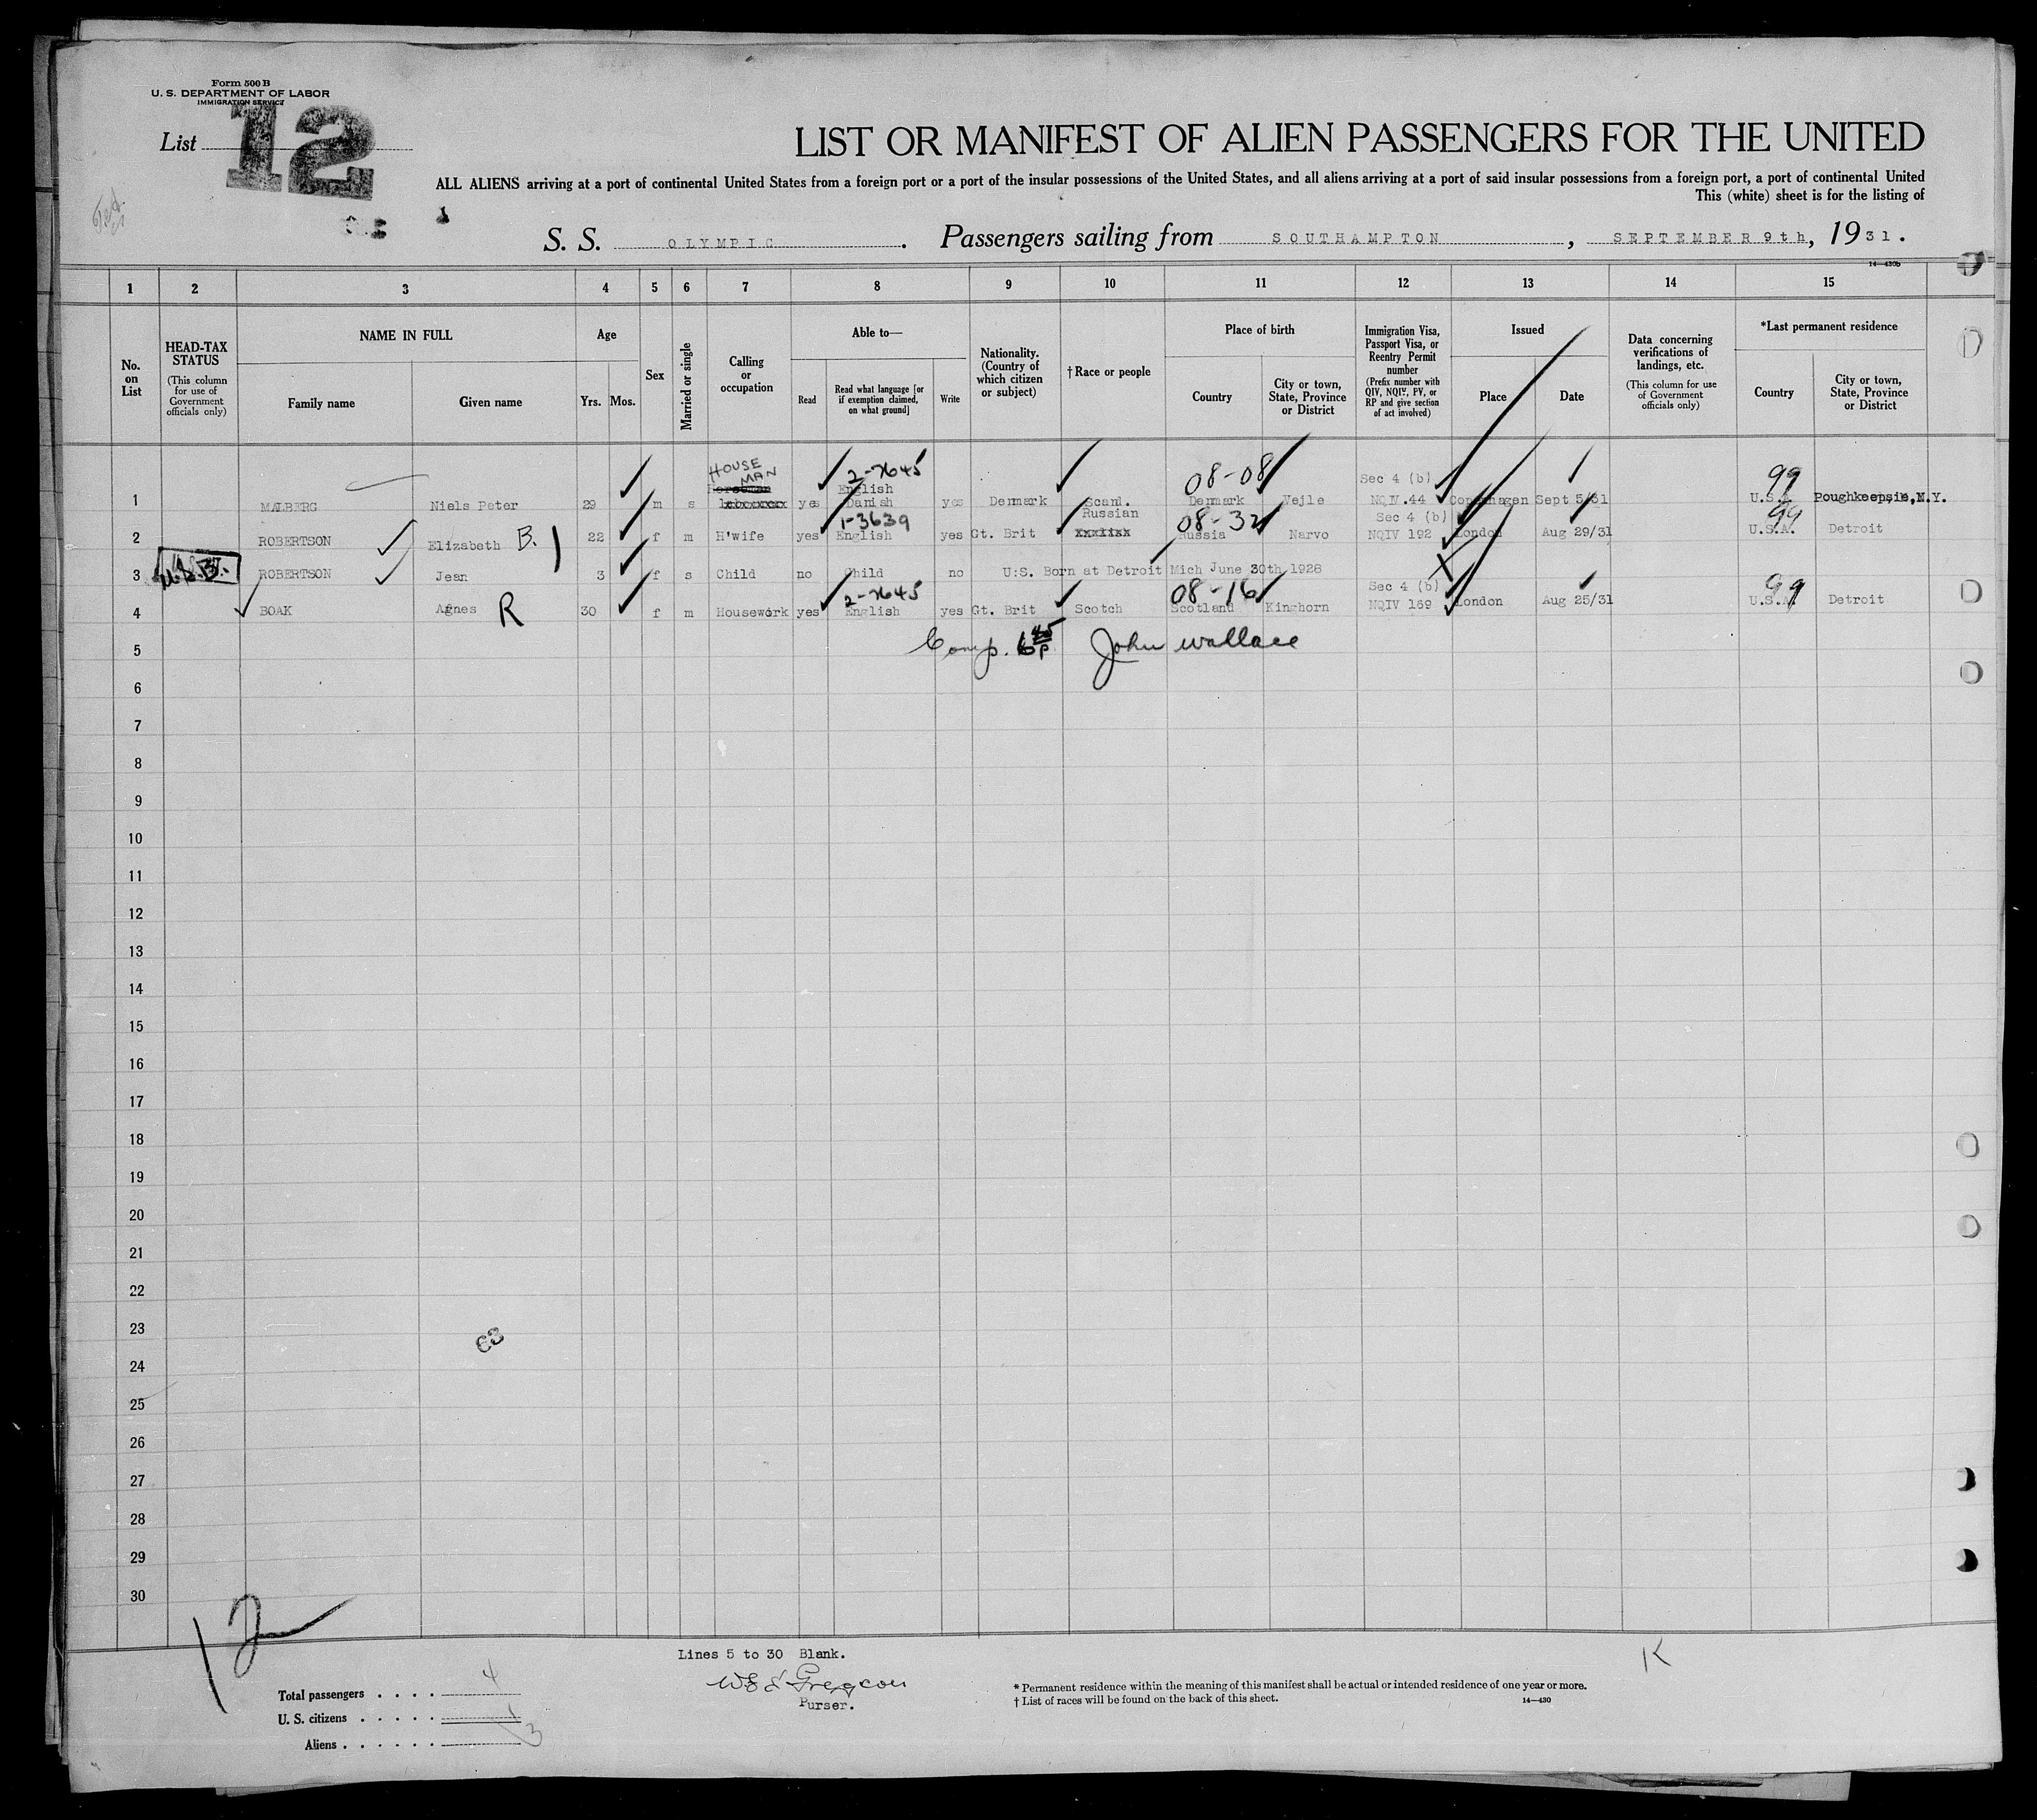 Form 500 B
U. S. DEPARTMENT OF LABOR
IMMIGRATION SERVICE
List 12
LIST OR MANIFEST OF ALIEN PASSENGERS FOR THE UNITED
ALL ALIENS arriving at a port of continental United States from a foreign port or a port of the insular possessions of the United States, and all aliens arriving at a port of said insular possessions from a foreign port, a port of continental United
This (white) sheet is for the listing of
S. S. OLYMPIC. Passengers sailing from SOUTHAMPTON, SEPTEMBER 9th, 1931.
14—430b
1 2 3 4 5 6 7 8 9 10 11 12 13 14 15
No. on List
HEAD-TAX STATUS
(This column for use of Government officials only)
NAME IN FULL
Family name
Given name
Age
Yrs.
Mos.
Sex
Married or single
Calling or occupation
Able to—
Read
Read what language [or if exemption claimed, on what ground]
Write
Nationality. (Country of which citizen or subject)
† Race or people
Place of birth
Country
City or town, State, Province or District
Immigration Visa, Passport Visa, or Reentry Permit number
(Prefix number with QIV, NQIV, PV, or RP and give section of act involved)
Issued
Place
Date
Data concerning verifications of landings, etc.
(This column for use of Government officials only)
*Last permanent residence
Country
City or town, State, Province or District
HOUSE MAN 2-7645 08-08 Sec 4 (b) 99
English
1 MALBERG Niels Peter 29 m s yes Danish yes Denmark Scand. Denmark Vejle NQIV.44 Copenhagen Sept 5/31 U.S.A. Poughkeepsie,N.Y.
1-3639 Russian 08-32 Sec 4 (b) 99
2 ROBERTSON Elizabeth B. 22 f m H'wife yes English yes Gt. Brit Russia Narvo NQIV 192 London Aug 29/31 U.S.A. Detroit
3 U.S.B. ROBERTSON Jean 3 f s Child no Child no U.S. Born at Detroit Mich June 30th 1928
2-7645 08-16 Sec 4 (b) 99
4 BOAK Agnes R 30 f m Housework yes English yes Gt. Brit Scotch Scotland Kinghorn NQIV 169 London Aug 25/31 U.S.A. Detroit
5 Comp. 6 45 P John Wallace
6
7
8
9
10
11
12
13
14
15
16
17
18
19
20
21
22
23
63
24
25
26
27
28
29
30
12
Lines 5 to 30 Blank.
K
Purser.
Total passengers . . . . 4
U. S. citizens . . . . . 1
Aliens . . . . . . 3
* Permanent residence within the meaning of this manifest shall be actual or intended residence of one year or more.
† List of races will be found on the back of this sheet.
14—430